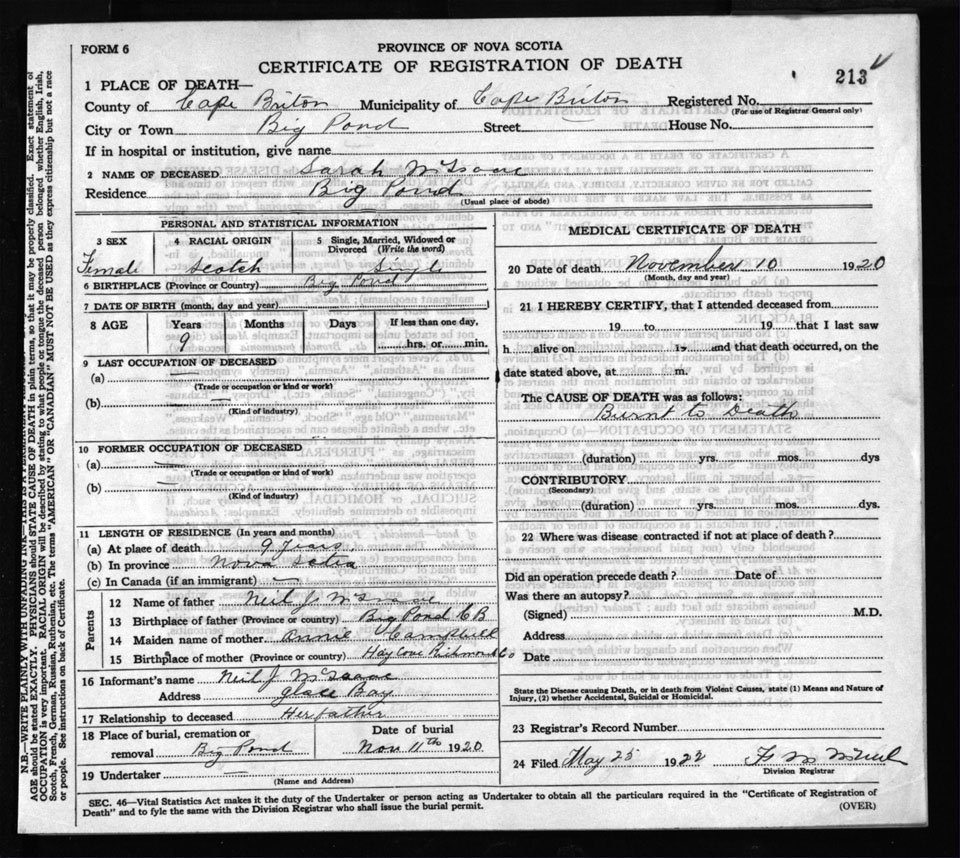 FORM 6
PROVINCE OF NOVA SCOTIA
CERTIFICATE OF REGISTRATION OF DEATH
213
1 PLACE OF DEATH—
County of Cape Briton Municipality of Cape Briton Registered No.
(For use of Registrar General only)
City or Town Big Pond Street House No.
If in hospital or institution, give name
2 NAME OF DECEASED Sarah McIsaac
Residence Big Pond
(Usual place of abode)
PERSONAL AND STATISTICAL INFORMATION
3 SEX 4 RACIAL ORIGIN 5 Single, Married, Widowed or Divorced (Write the word)
Female Scotch Single
6 BIRTHPLACE (Province or Country) Big Pond
7 DATE OF BIRTH (month, day and year)
8 AGE Years Months Days If less than one day,
9 hrs. or min.
9 LAST OCCUPATION OF DECEASED
(a) —
(Trade or occupation or kind or work)
(b) —
(Kind of industry)
10 FORMER OCCUPATION OF DECEASED
(a) —
(Trade or occupation or kind of work)
(b) —
(Kind of industry)
11 LENGTH OF RESIDENCE (In years and months)
(a) At place of death 9 Years
(b) In province Nova Scotia
(c) In Canada (if an immigrant) —
Parents
12 Name of father Neil J McIsaac
13 Birthplace of father (Province or country) Big Pond CB
14 Maiden name of mother Annie Campbell
15 Birthplace of mother (Province or country) Hay Cove Richmond Co
16 Informant's name Neil J McIsaac
Address Glace Bay
17 Relationship to deceased Her father
18 Place of burial, cremation or removal Big Pond
Date of burial
Nov 11th 1920
19 Undertaker —
(Name and Address)
MEDICAL CERTIFICATE OF DEATH
20 Date of death November 10 1920
(Month, day and year)
21 I HEREBY CERTIFY, that I attended deceased from
19 to 19 that I last saw
h alive on 19 and that death occurred, on the
date stated above, at m.
The CAUSE OF DEATH was as follows:
Burnt to Death
(duration) yrs. mos. dys
CONTRIBUTORY
(Secondary)
(duration) yrs. mos. dys.
22 Where was disease contracted if not at place of death?
Did an operation precede death? Date of
Was there an autopsy?
(Signed) M.D.
Address
Date
State the Disease causing Death, or in death from Violent Causes, state (1) Means and Nature of
Injury, (2) whether Accidental, Suicidal or Homicidal.
23 Registrar's Record Number
24 Filed May 25 1922
Division Registrar
SEC. 46—Vital Statistics Act makes it the duty of the Undertaker or person acting as Undertaker to obtain all the particulars required in the "Certificate of Registration of
Death" and to fyle the same with the Division Registrar who shall issue the burial permit.
(OVER)
N.B.—WRITE PLAINLY WITH UNFADING INK—THIS IS A PERMANENT
AGE should be stated EXACTLY. PHYSICIANS should STATE CAUSE OF DEATH in plain terms, so that it may be properly classified. Exact statement of
OCCUPATION is very important. RACIAL ORIGIN will be described by stating to what people or tongue the deceased person belonged whether English, Irish,
Scotch, French, German, Russian, Ruthenian, etc. The terms "AMERICAN" OR "CANADIAN" MUST NOT BE USED as they express citizenship but not a race
or people. See instructions on back of Certificate.